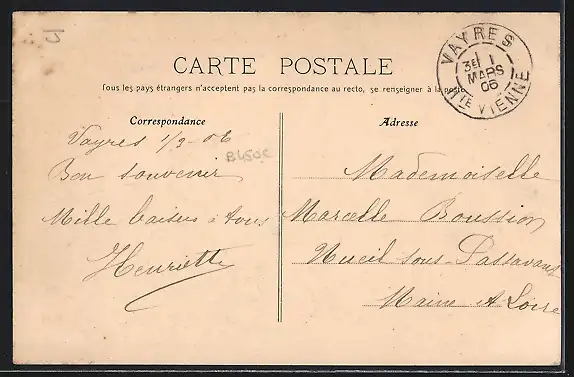 CARTE POSTALE
Tous les pays étrangers n'acceptent pas la correspondance au recto, se renseigner à la poste
VAYRES
3E 1
MARS
06
Hte VIENNE
Correspondance
Vayres 1/3-06
Bon souvenir
Mille baisers à tous
Henriette
Adresse
Mademoiselle
Marcelle Boussion
Nueil sous Passavant
Maine et Loire